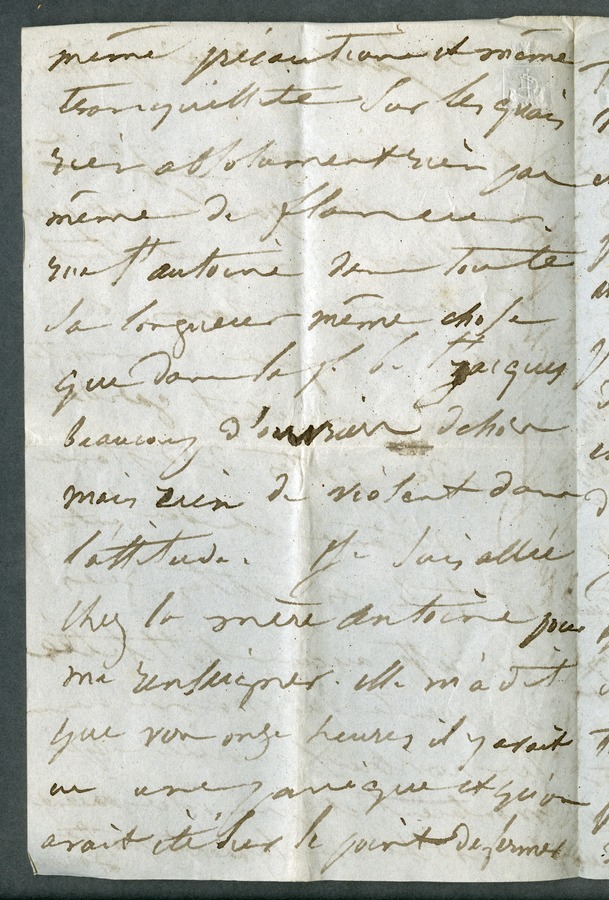 même précaution et même
tranquillité sur les quais
rien absolument rien pas
même de flaneurs.
rue St antoine dans toute
sa longueur même chose
que dans le f. St Jacques
beaucoup d'ouvriers dehors
mais rien de violent dans
l'attitude. Je suis allée
chez la mère antoine pour
me renseigner. elle m'a dit
que vers onze heures il y avait
eu une panique et qu'on
avait été sur le point de fermer